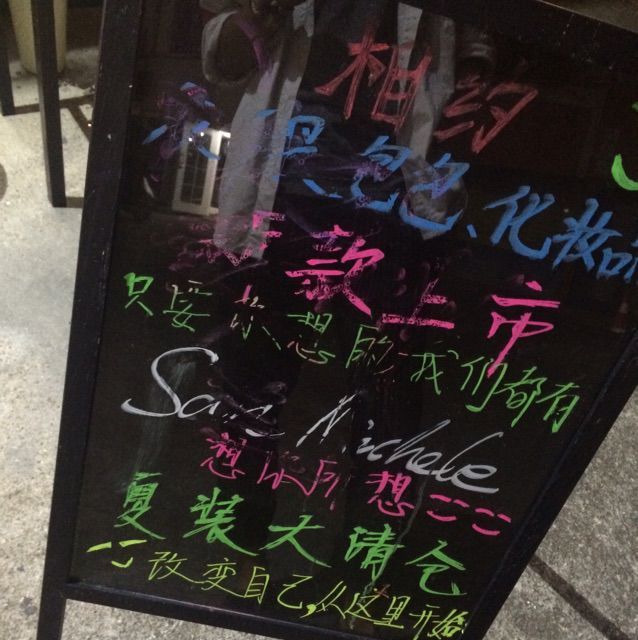 相约
包包、化妆品
新款上市
只要你想的,我们都有
San Michele
想你所想
夏装大清仓
改变自己,从这里开始